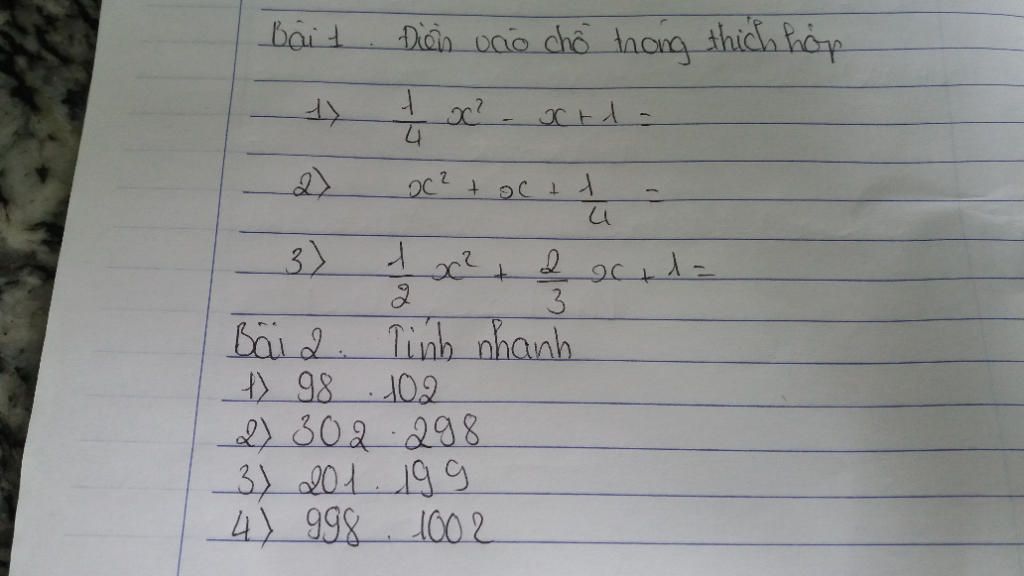 Bài 1. Điền vào chỗ trống thích hợp
1) 1/4 x² - x + 1 =
2) x² + x + 1/4 =
3) 1/2 x² + 2/3 x + 1 =
Bài 2. Tính nhanh
1) 98 . 102
2) 302 . 298
3) 201 . 199
4) 998 . 1002